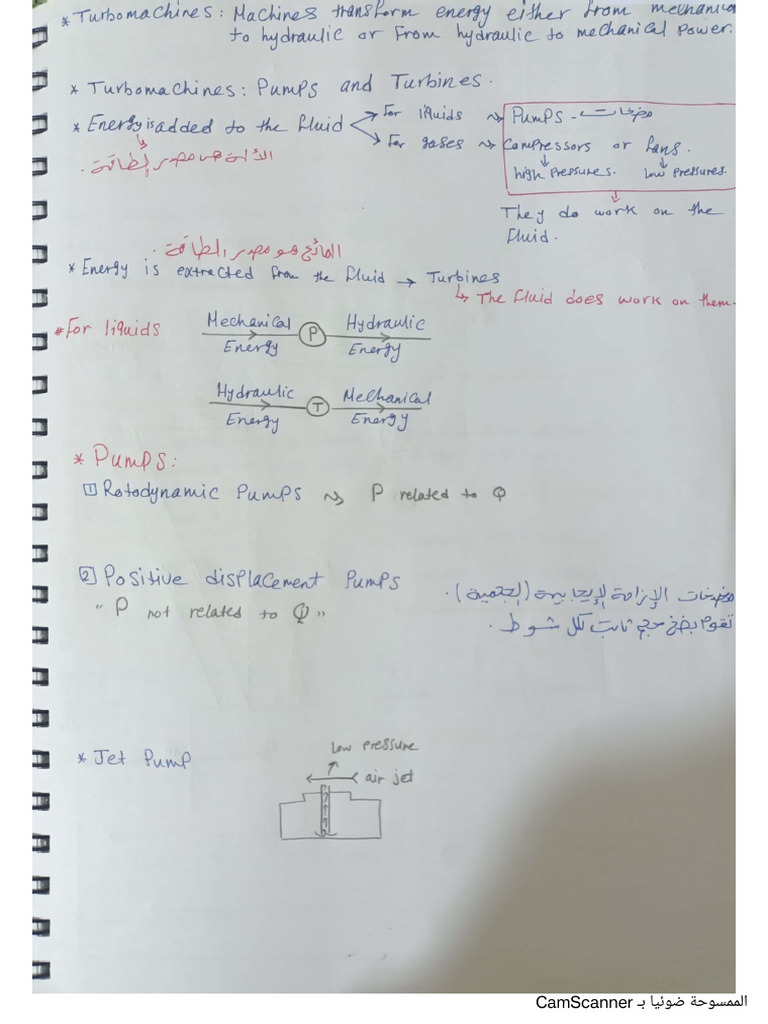 * Turbomachines: Machines transform energy either from mechanical
to hydraulic or from hydraulic to mechanical power.
* Turbomachines: Pumps and Turbines.
* Energy is added to the fluid
For liquids
Pumps - مضخات
For gases
Compressors or fans.
high pressures. low pressures.
الآلة هي مصدر الطاقة .
They do work on the
fluid.
المائع هو مصدر الطاقة .
* Energy is extracted from the fluid → Turbines
↳ The fluid does work on them.
* For liquids
Mechanical Energy P Hydraulic Energy
Hydraulic Energy T Mechanical Energy
* Pumps:
1 Rotodynamic Pumps P related to Q
2 Positive displacement Pumps
مضخات الإزاحة الإيجابية (الحجمية) .
" P not related to Q "
تقوم بضخ حجم ثابت كل شوط .
* Jet Pump
low pressure
air jet
الممسوحة ضوئيا بـ CamScanner